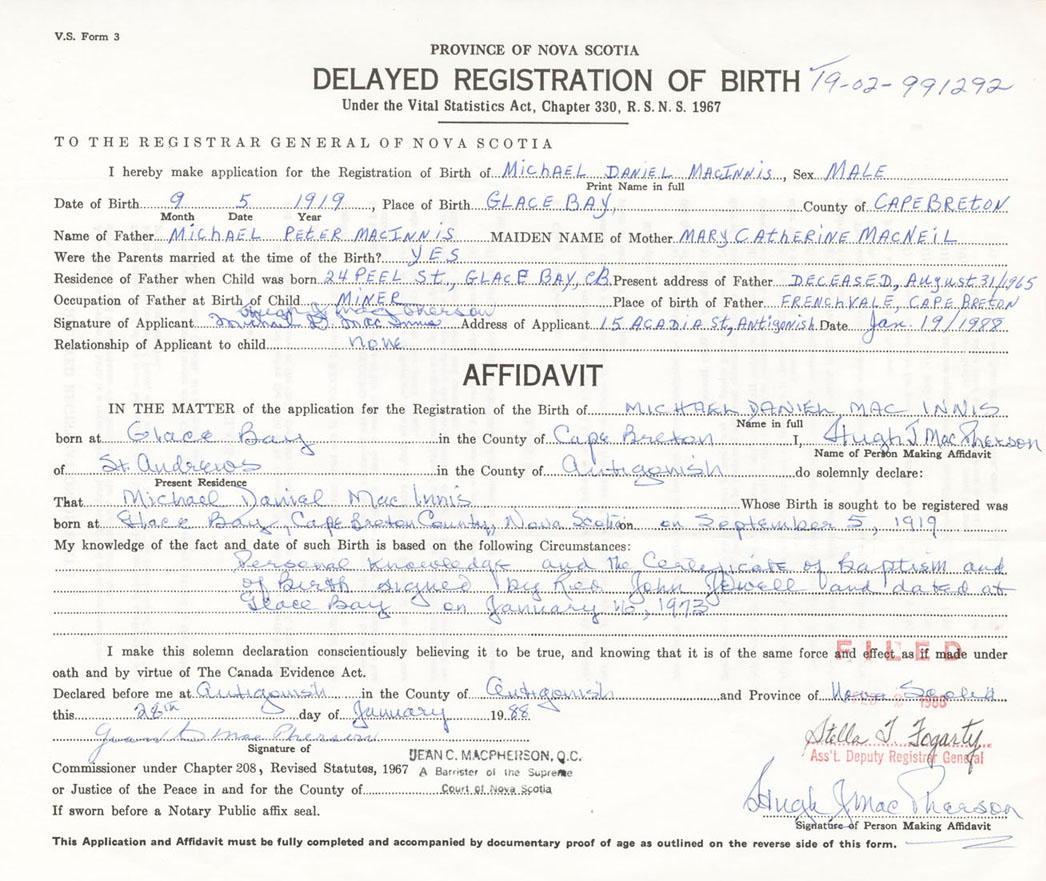 V.S. Form 3
PROVINCE OF NOVA SCOTIA
DELAYED REGISTRATION OF BIRTH 19-02-991292
Under the Vital Statistics Act, Chapter 330, R.S.N.S. 1967
TO THE REGISTRAR GENERAL OF NOVA SCOTIA
I hereby make application for the Registration of Birth of MichAEL DANIEL MACINNIS, Sex MALE
Print Name in full
Date of Birth 9 5 1919, Place of Birth GLACE BAY, County of CAPE BRETON
Month Date Year
Name of Father MichAEL PETER MACINNIS MAIDEN NAME of Mother MARY CATHERINE MACNEIL
Were the Parents married at the time of the Birth? YES
Residence of Father when Child was born 24 PEEL St, GLACE BAY, CB Present address of Father DECEASED, August 31/1965
Occupation of Father at Birth of Child MINER Place of birth of Father FRENCHVALE, CAPE BRETON
Hugh J Mac Pherson
Signature of Applicant Michael D. Mac Innis Address of Applicant 15 ACADIA St, Antigonish Date Jan. 19/1988
Relationship of Applicant to child none
AFFIDAVIT
IN THE MATTER of the application for the Registration of the Birth of MICHAEL DANIEL MAC INNIS
Name in full
born at Glace Bay in the County of Cape Breton I, Hugh J Mac Pherson
Name of Person Making Affidavit
of St. Andrews in the County of Antigonish do solemnly declare:
Present Residence
That Michael Daniel Mac Innis Whose Birth is sought to be registered was
born at Glace Bay, Cape Breton County, Nova Scotia on on September 5, 1919
My knowledge of the fact and date of such Birth is based on the following Circumstances:
Personal Knowledge and the Certificate of Baptism and
of Birth signed by Rev John Jewell and dated at
Glace Bay on January 16, 1973
I make this solemn declaration conscientiously believing it to be true, and knowing that it is of the same force and effect as if made under
FILED
oath and by virtue of The Canada Evidence Act.
Declared before me at Antigonish in the County of Antigonish and Province of Nova Scotia
this 28th day of January 1988
Mac Pherson
Stella T Fogarty
Signature of
Ass't. Deputy Registrar General
DEAN C. MACPHERSON, Q.C.
Commissioner under Chapter 208, Revised Statutes, 1967 A Barrister of the Supreme
or Justice of the Peace in and for the County of Court of Nova Scotia
Hugh J Mac Pherson
If sworn before a Notary Public affix seal.
Signature of Person Making Affidavit
This Application and Affidavit must be fully completed and accompanied by documentary proof of age as outlined on the reverse side of this form.